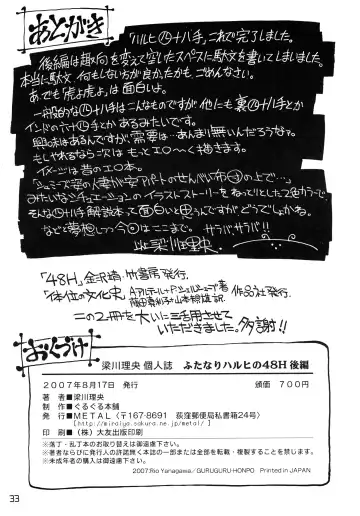 あとがき
「ハルヒ㊃十八手」これで完了しました。
後編は趣向を変えて空いたスペースに駄文を書いてしまいました。
本当に駄文 何もしない方が良かったかも ごめんなさい。
あ、でも「虎よ虎よ」は面白いよ。
一般的な㊃十八手はこんなものですが 他にも 裏㊃十八手とか
インドの六十㊃手とか あるみたいです。
興味はあるんですが、需要は…あんまり無いんだろうなァ。
もしやれるなら次は もっと エロ〜く描きます。
イメージは昔のエロ本。
みたいなシチュエーションの イラストストーリーを ねっとりとした2色カラーで。
そんな㊃十八手 解説本って面白いと思うんですがどうでしょかね。
などと夢想しつつ 今日はここまで。 サラバサラバ!!
梁川理央.
「48H」 金沢靖・竹書房 発行.
「体位の文化史」
作品社 発行.
この2冊を 大いに活用させて
いただきました。多謝!!
おくづけ
梁川理央 個人誌 ふたなりハルヒの48H 後編
2007年8月17日 発行 頒価 700円
著 者■梁川理央
制 作■ぐるぐる本舗
発 行■METAL〈〒167-8691 荻窪郵便局私書箱24号〉
[http://miraiya.sakura.ne.jp/metal/]
印 刷■(株)大友出版印刷
※落丁・乱丁本のお取り替えは御遠慮下さい。
※著者ならびに発行人の許諾無く本誌の一部または全部を転載・複製することを禁じます。
※未成年者の購入は御遠慮下さい。
2007:Rio Yanagawa／GURUGURU-HONPO Printed in JAPAN
33